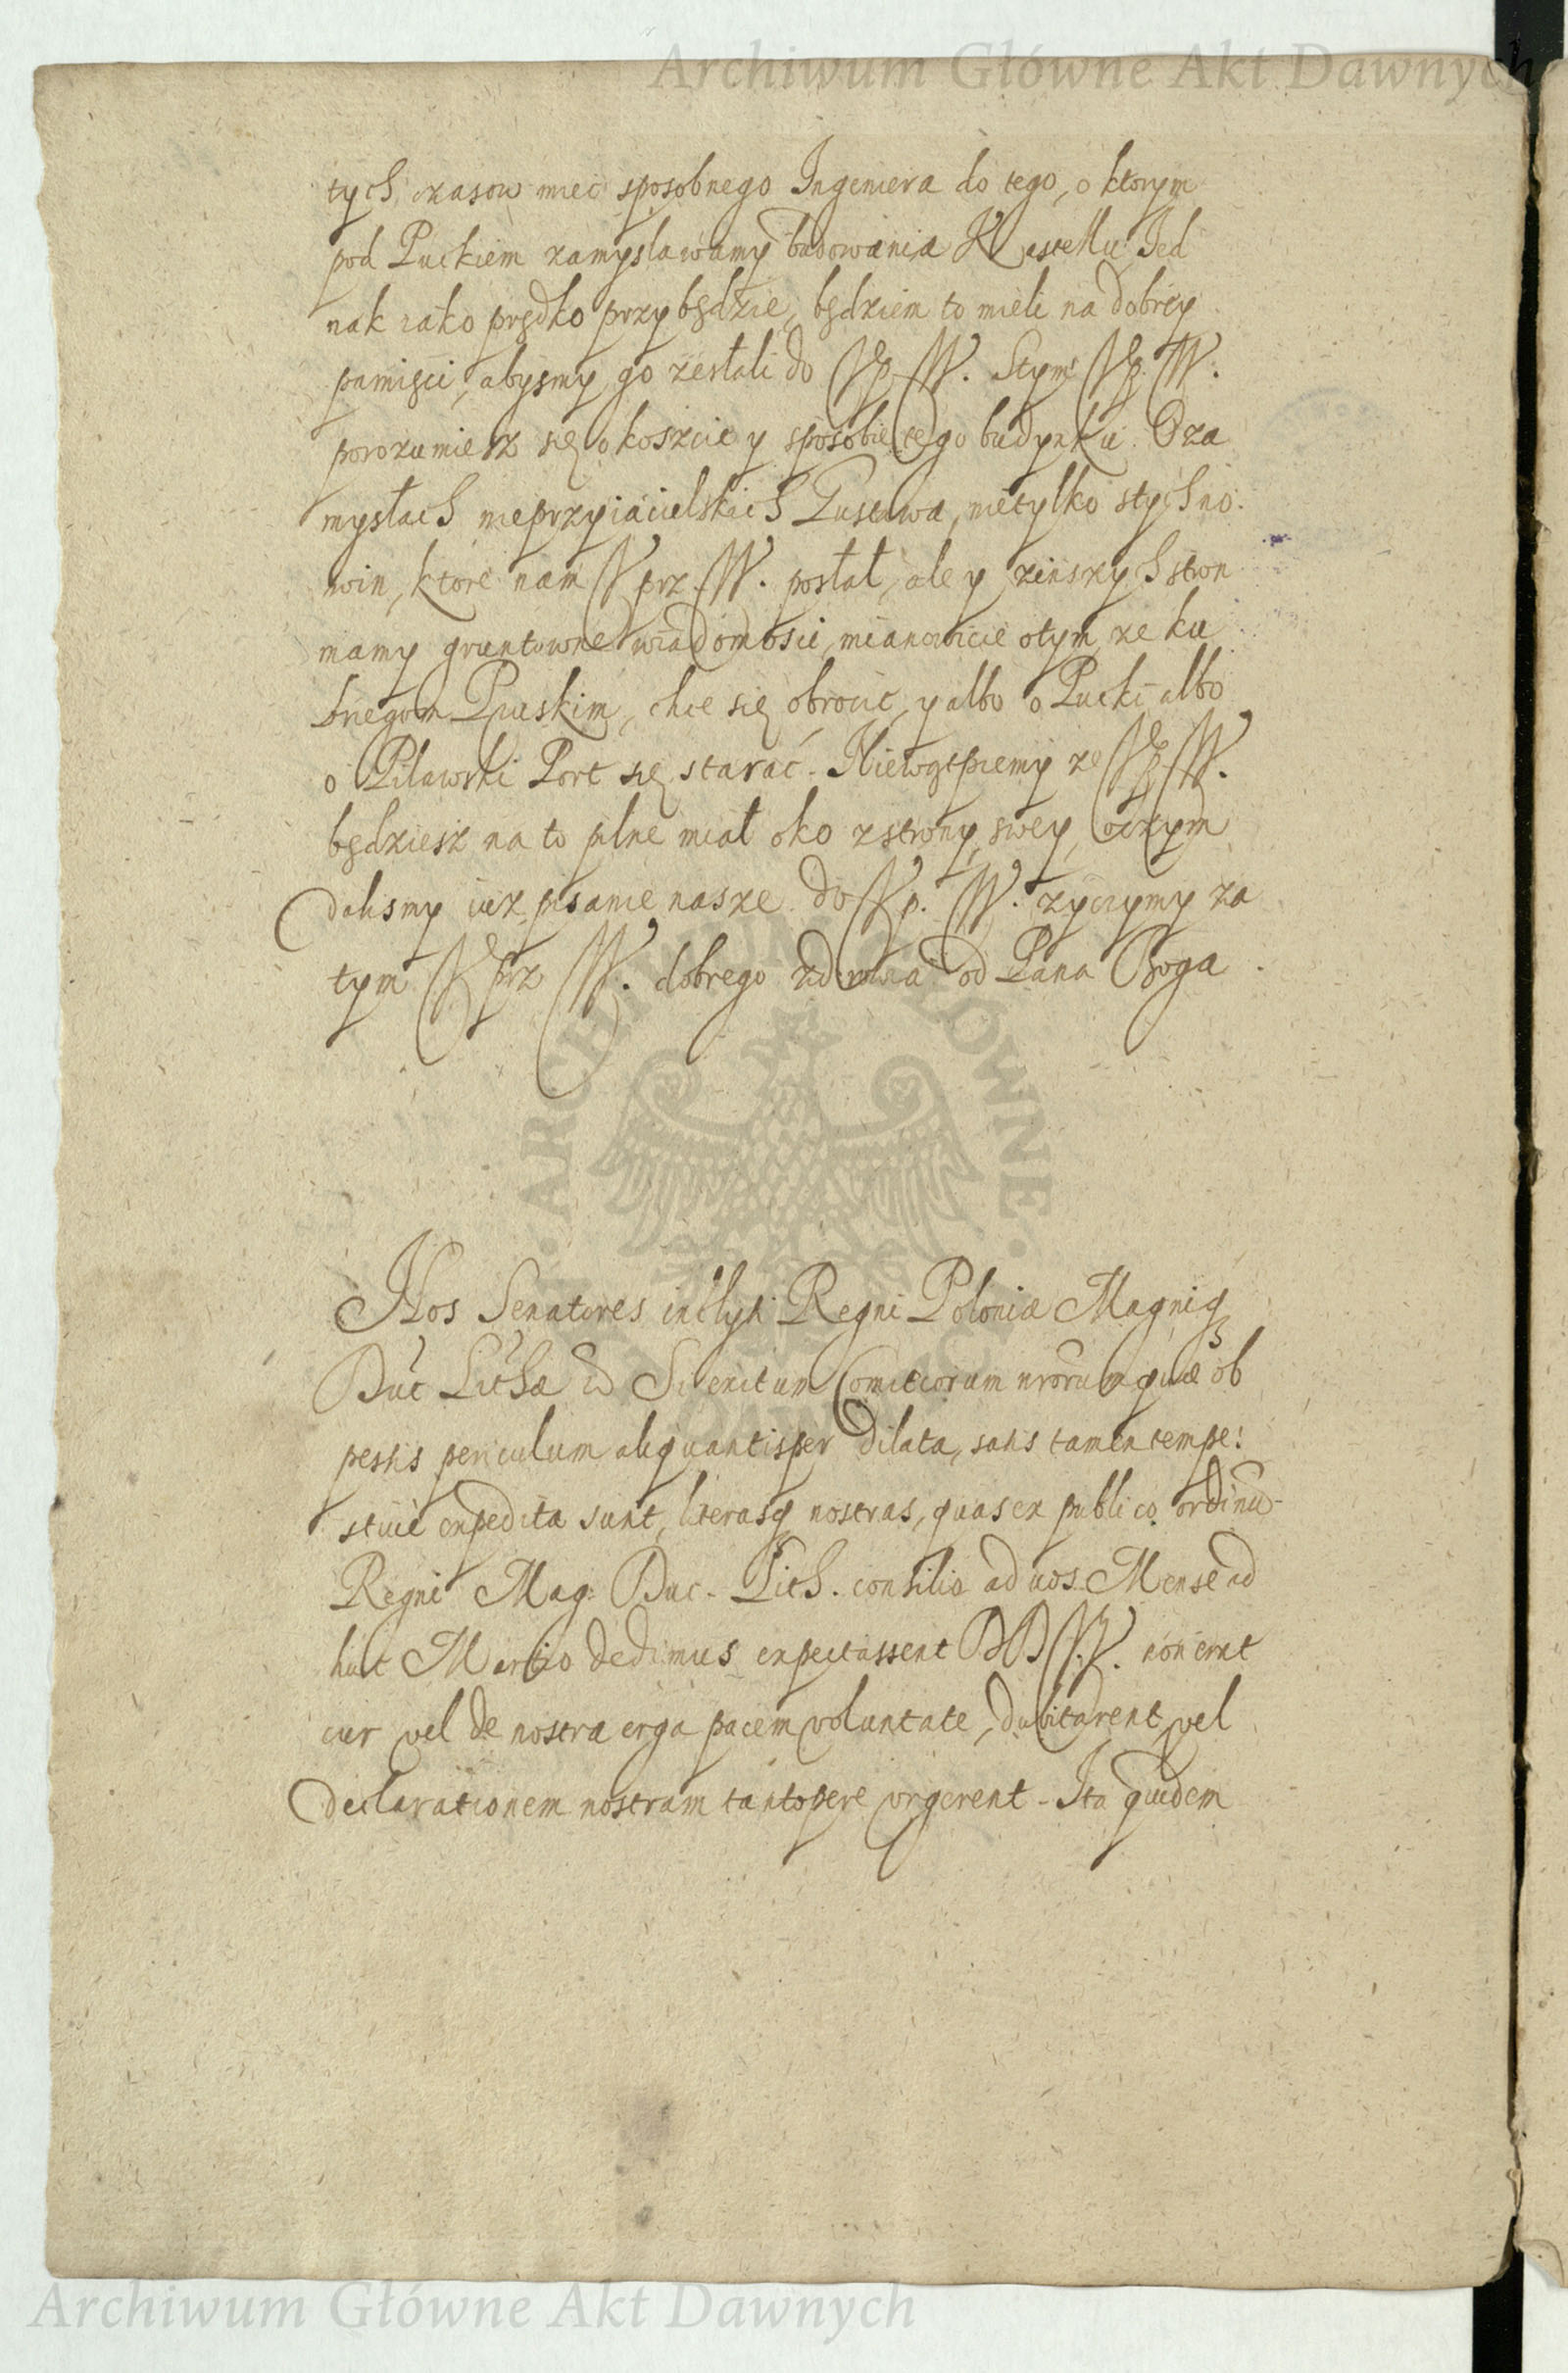 Archiwum Główne Akt Dawnych
tych czasow miec sposobnego Ingeniera do tego, o ktorym
pod Puckiem zamyslawamy budowania Kastellu. Jed
nak iako prędko przybędzie, będziem to mieli na dobrey
pamięci, abysmy go zesłali do Up. W. Ztym Up. W.
porozumiesz się o koszcie y sposobie tego budynku. O za
mysłach nieprzyiacielskich Gustawa, nietylko ztych no
win, ktore nam Uprz. W. posłał, ale y zinszych stron
mamy gruntowne wiadomosci, mianowicie o tym, ze ku
bregom Pruskim, chce się obrocic, y albo o Pucki albo
o Pilawski Port się starać. Niewątpiemy ze Up. W.
będziesz na to pilne miał oko z strony swey, o czym
dalismy iuz pisanie nasze do Up. W. zyczymy za
tym Uprz W. dobrego zdrowia od Pana Boga.
ARCHIWUM GŁÓWNE
Nos Senatores inclyti Regni Poloniæ Magniq
Duc Lithæ Comitiorum nrorum quæ ob
pestis periculum aliquantisper dilata, satis tamen tempe:
stive expedita sunt, literasq nostras, quas ex publico ordinu
Regni Mag: Duc. Lith. consilio ad vos Mense ad
huc Martio dedimus expectassent DD.V.V. non erat
cur vel de nostra erga pacem voluntate, dubitarent, vel
declarationem nostram tantopere urgerent. Ita quidem
Archiwum Główne Akt Dawnych